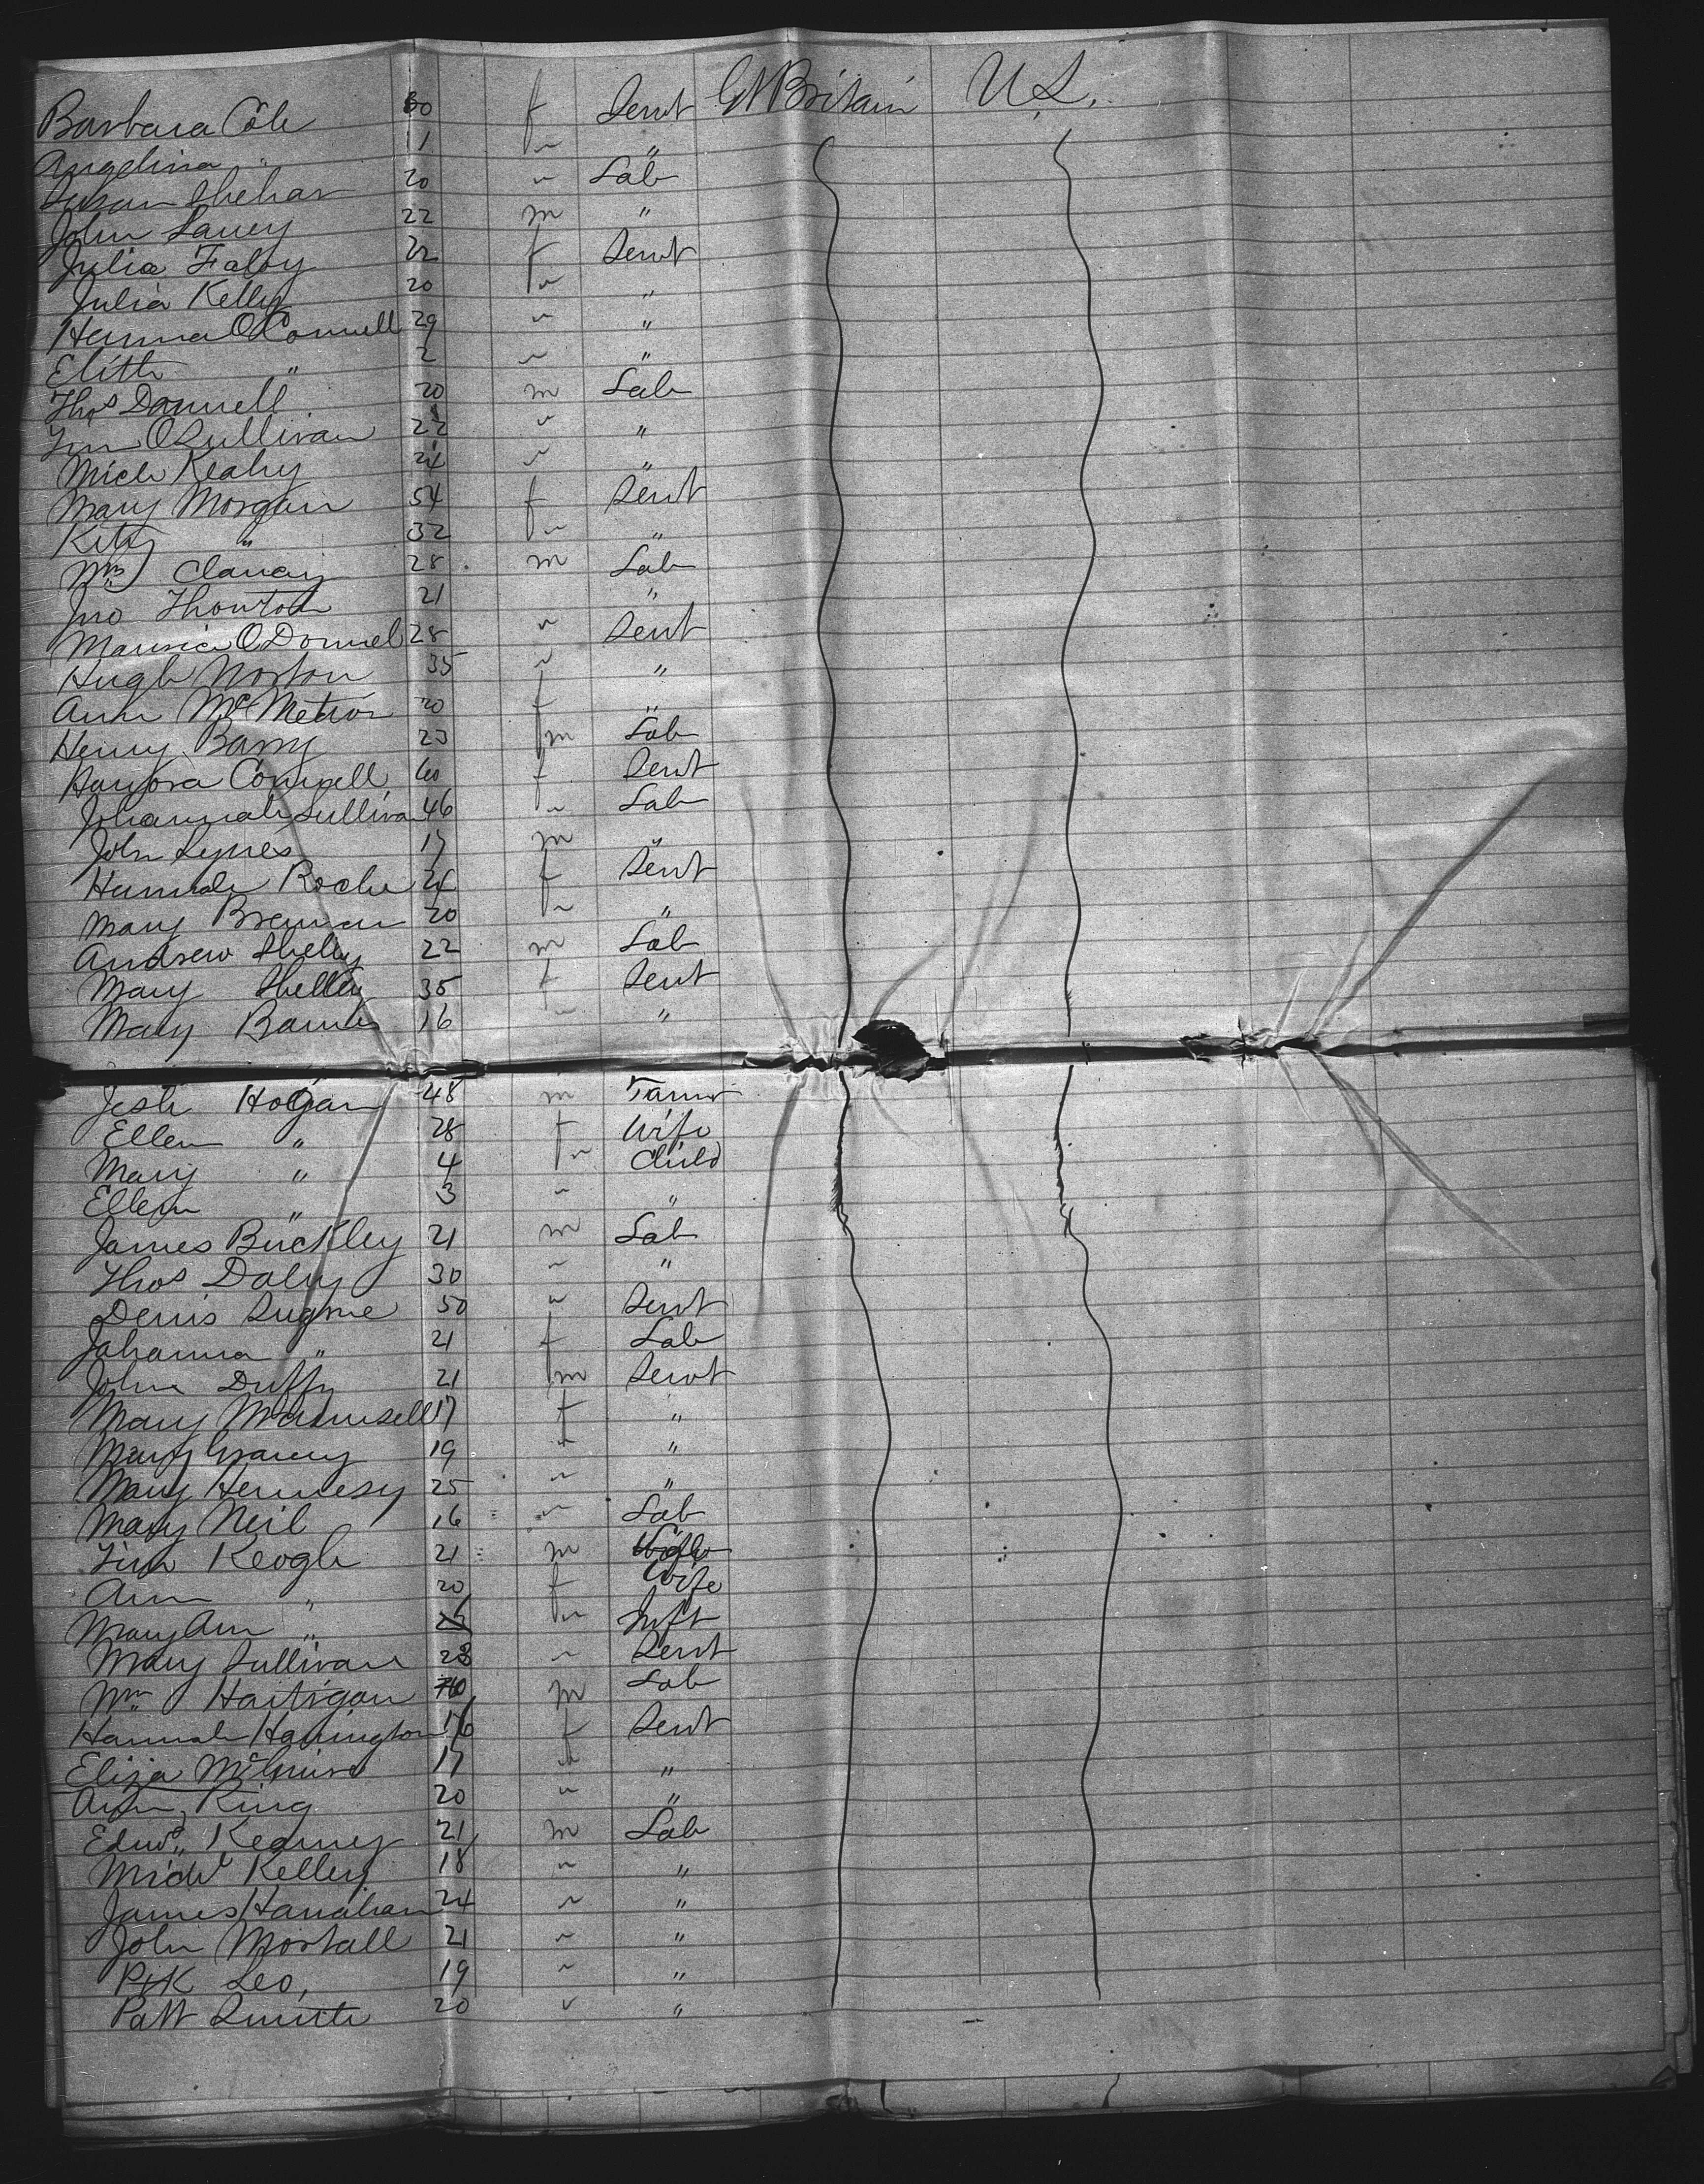 Barbara Cole 30 f Servt Gt Britain U.S.
Angelina " 11 " "
Susan Shehan 20 " Lab
John Laney 22 m "
Julia Faley 22 f Servt
Julia Kelly 20 " "
Hanna O'Connell 29 " "
Elith " 2 " "
Thos Donnell 20 m Lab
Tim O'Sullivan 22 " "
Mich Keahy 24 " "
Mary Morgan 54 f Servt
Kitty " 32 " "
Wm Clancy 28 m Lab
Jno Thornton 21 "
Maurice O'Donnel 28 " Servt
Hugh Norton 35 " "
Ann 20 f "
Henry Barry 23 m Lab
Hanora Connell 60 f Servt
Johannah Sullivan 46 " Lab
John Lynes 17 m "
Hannah Roche 24 f Servt
Mary Brennan 20 " "
Andrew Shelly 22 m Lab
Mary Shelley 35 f Servt
Mary Barnes 16 " "
Hogan 48 m Farmr
Ellen " 28 f Wife
Mary " 4 " Child
Ellen " 3 " "
James Buckley 21 m Lab
Thos Daly 30 " "
Denis Sugrue 50 " Servt
Johanna " 21 f Lab
John Duffy 21 m Servt
Mary Maunsell 17 f "
Mary 19 " "
Mary Hennesy 25 " "
Mary Neil 16 " Lab
Tim Keogh 21 m
Ann " 20 f Wife
Mary Ann " " Inft
Mary Sullivan 23 " Servt
Wm Hartigan m Lab
Hannah Harrington 16 f Servt
Eliza McGuire 17 " "
Ann King 20 " "
Edwd Kearney 21 m Lab
Michl Kelley 18 " "
James Hanahan 24 " "
John Mortall 21 " "
Ptk Leo, 19 " "
Patt Smith 20 " "